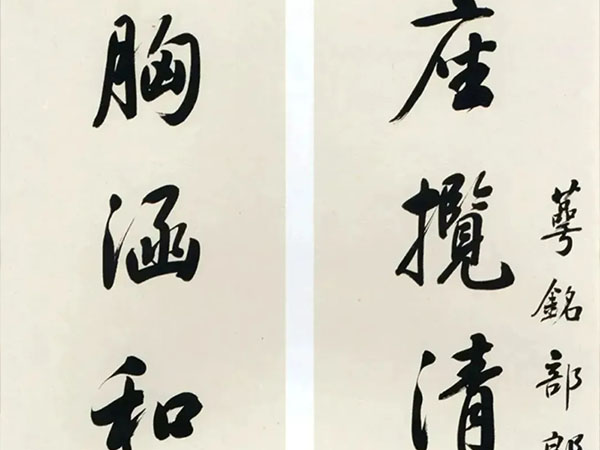 蕚銘部郎
座攬清
胸涵和